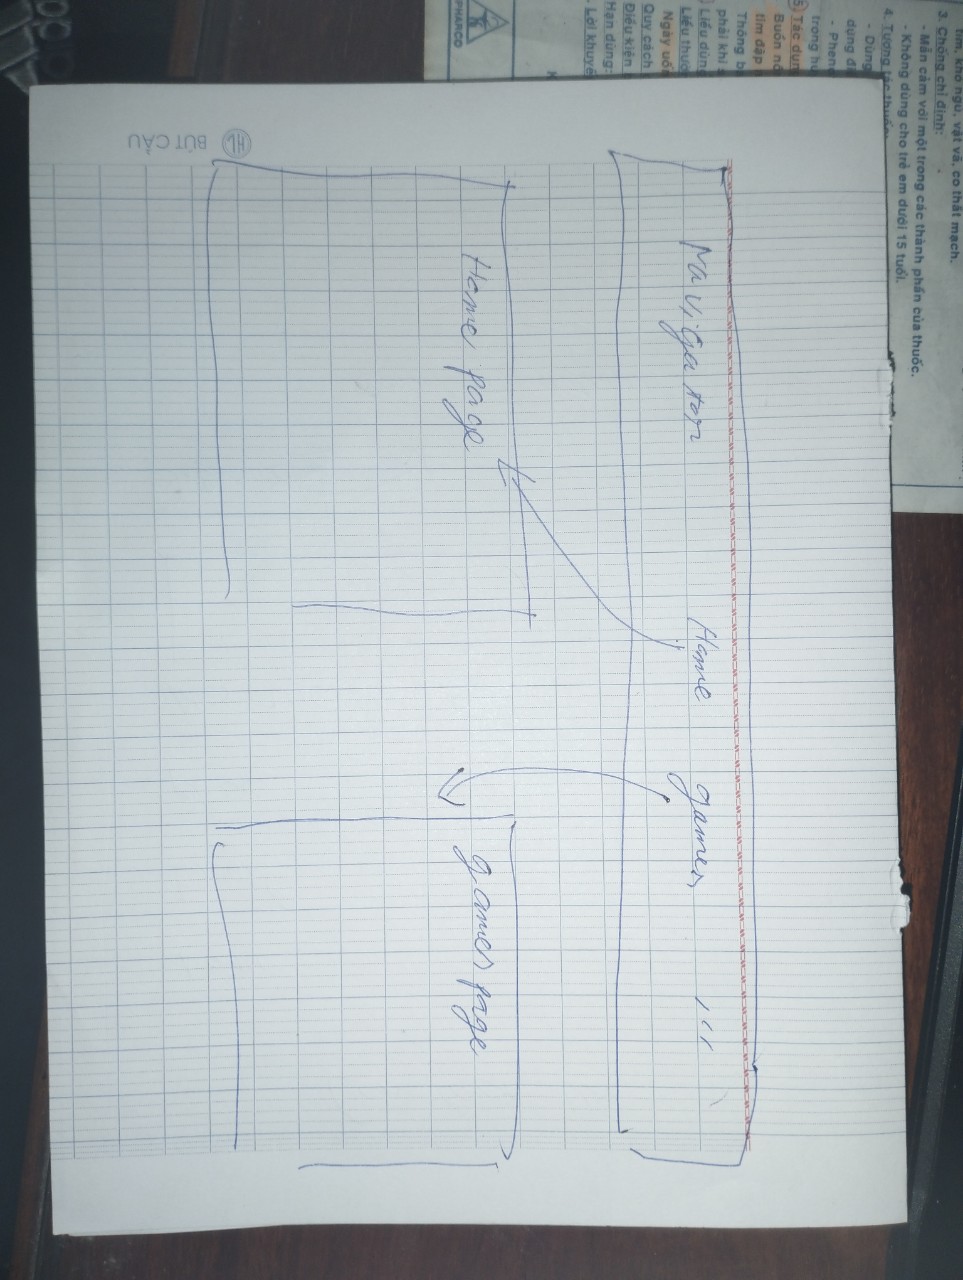 tim, khó ngủ, vật vã, co thắt mạch.
3. Chống chỉ định:
- Mẫn cảm với một trong các thành phần của thuốc.
- Không dùng cho trẻ em dưới 15 tuổi.
4. Tương tác thuốc:
- Dùng
dụng đ
- Phen
trong h
5. Tác dụn
Buồn nô
tim đập
Thông b
phải khi
Liều dùn
Liều thườ
Ngày uố
Quy cách
Điều kiện
Hạn dùng:
Lời khuyê
K
PHARCO
Navigator Home games ...
Home page games page
BÚT CẦU